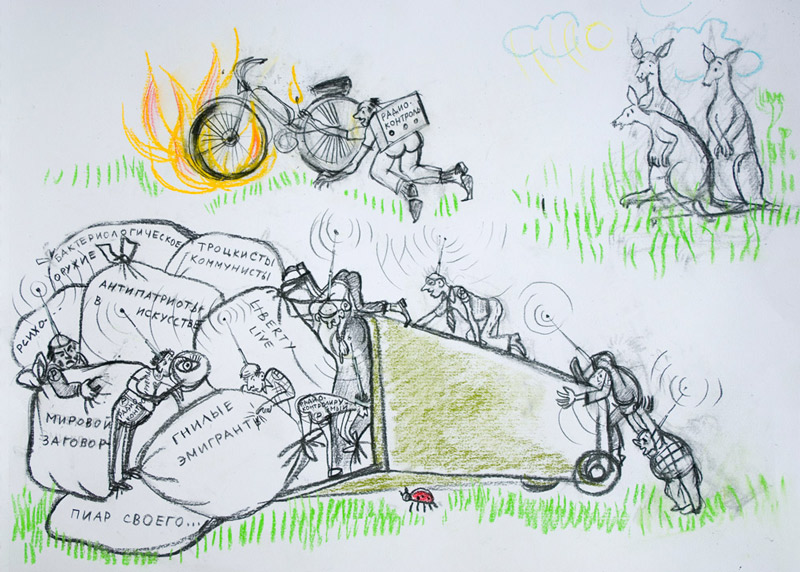 РАДИО-
КОНТРОЛЬ
БАКТЕРИОЛОГИЧЕСКОЕ
ОРУЖИЕ
ТРОЦКИСТЫ
КОММУНИСТЫ
АНТИПАТРИОТЫ
В
ИСКУССТВЕ
LIBERTY
LIVE
ПСИХО-
РАДИО
МИРОВОЙ
ЗАГОВОР
ГНИЛЫЕ
ЭМИГРАНТЫ
РАДИО-
ПИАР СВОЕГО...